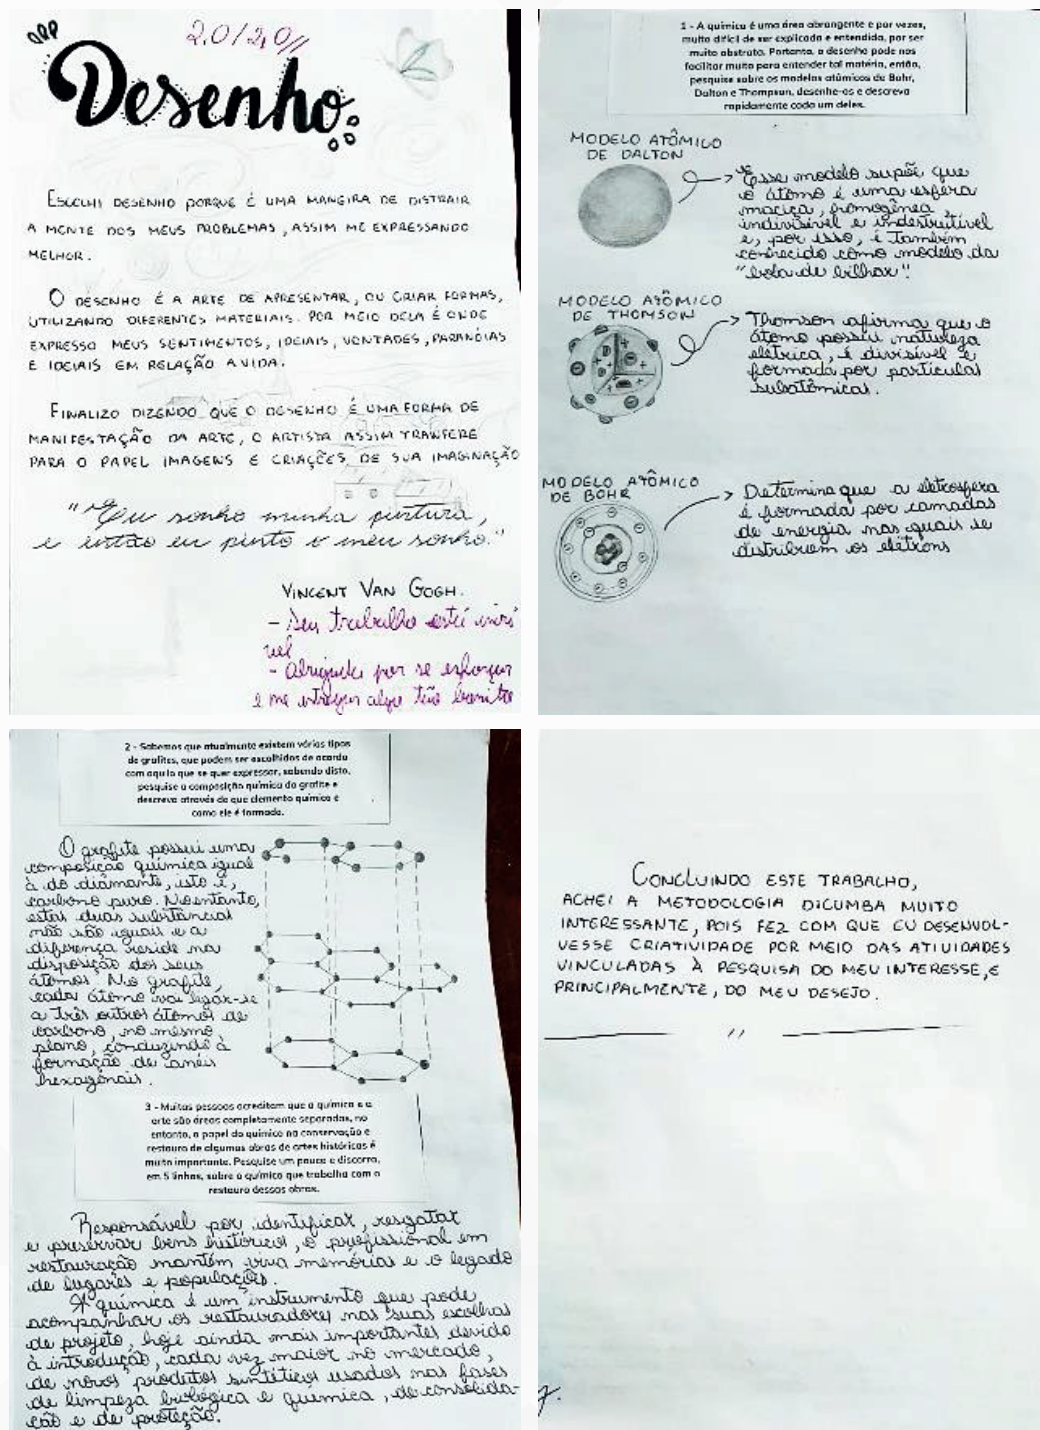 2,0/2,0//
Desenho
ESCOLHI DESENHO PORQUE É UMA MANEIRA DE DISTRAIR
A MENTE DOS MEUS PROBLEMAS, ASSIM ME EXPRESSANDO
MELHOR.
O DESENHO É A ARTE DE APRESENTAR, OU CRIAR FORMAS,
UTILIZANDO DIFERENTES MATERIAIS. POR MEIO DELA É ONDE
EXPRESSO MEUS SENTIMENTOS, IDEIAIS, VONTADES, PARANÓIAS
E IDEIAIS EM RELAÇÃO A VIDA.
FINALIZO DIZENDO QUE O DESENHO É UMA FORMA DE
MANIFESTAÇÃO DA ARTE, O ARTISTA ASSIM TRANFERE
PARA O PAPEL IMAGENS E CRIAÇÕES DE SUA IMAGINAÇÃO
"Eu sonho minha pintura,
e então eu pinto o meu sonho."
VINCENT VAN GOGH.
- Seu trabalho está incrí
vel
- Obrigada por se esforçar
e me entregar algo tão bonito
1 - A química é uma área abrangente e por vezes,
muito difícil de ser explicada e entendida, por ser
muito abstrata. Portanto, o desenho pode nos
facilitar muito para entender tal matéria, então,
pesquise sobre os modelos atômicos de Bohr,
Dalton e Thompson, desenhe-os e descreva
rapidamente cada um deles.
MODELO ATÔMICO
DE DALTON
Esse modelo supõe que
o átomo é uma esfera
maciça, homogênea,
indivisível e indestrutível
e, por isso, é também
conhecido como modelo da
"bola de bilhar".
MODELO ATÔMICO
DE THOMSON
Thomson afirma que o
átomo possui natureza
elétrica, é divisível e
formada por partículas
subatômicas.
MODELO ATÔMICO
DE BOHR
Determina que a eletrosfera
é formada por camadas
de energia nas quais se
distribuem os elétrons
2 - Sabemos que atualmente existem vários tipos
de grafites, que podem ser escolhidos de acordo
com aquilo que se quer expressar, sabendo disto,
pesquise a composição química do grafite e
descreva através de que elemento químico e
como ele é formado.
O grafite possui uma
composição química igual
à do diamante, isto é,
carbono puro. No entanto,
estas duas substâncias
não são iguais e a
diferença reside na
disposição dos seus
átomos. No grafite,
cada átomo vai ligar-se
a três outros átomos de
carbono, no mesmo
plano, conduzindo à
formação de anéis
hexagonais.
3 - Muitas pessoas acreditam que a química e a
arte são áreas completamente separadas, no
entanto, o papel do químico na conservação e
restauro de algumas obras de artes históricas é
muito importante. Pesquise um pouco e discorra,
em 5 linhas, sobre o químico que trabalha com o
restauro dessas obras.
Responsável por identificar, resgatar
e preservar bens históricos, o profissional em
restauração mantém viva memórias e o legado
de lugares e populações.
A química é um instrumento que pode
acompanhar os restauradores nas suas escolhas
de projeto, hoje ainda mais importantes devido
à introdução, cada vez maior no mercado,
de novos produtos sintéticos usados nas fases
de limpeza biológica e química, de consolida-
ção e de proteção.
CONCLUINDO ESTE TRABALHO,
ACHEI A METODOLOGIA DICUMBA MUITO
INTERESSANTE, POIS FEZ COM QUE EU DESENVOL-
VESSE CRIATIVIDADE POR MEIO DAS ATIVIDADES
VINCULADAS À PESQUISA DO MEU INTERESSE, E
PRINCIPALMENTE, DO MEU DESEJO.